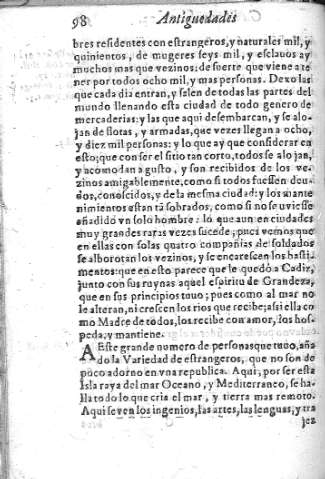 98 Antiguedades
bres residentes con estrangeros, y naturales mil, y
quinientos, de mugeres seys mil, y esclauos ay
muchos mas que vezinos: de suerte que viene a te
ner por todos ocho mil, y mas personas. Dexo las
que cada dia entran, y salen de todas las partes del
mundo llenando esta ciudad de todo genero de
mercaderias: y las que aqui desembarcan, y se alo-
jan de flotas, y armadas, que vezes llegan a ocho,
y diez mil personas: y lo que ay que considerar en
esto; que con ser el sitio tan corto, todos se alojan,
y acomodan a gusto, y son recibidos de los ve-
zinos amigablemente, como si todos fuessen deu-
dos, conocidos, y de la mesma ciudad: y los mante
nimientos estan tã sobrados, como si no se vuiesse
añadido vn solo hombre: lo que aun en ciudades
muy grandes raras vezes sucede; pues vemos que
en ellas con solas quatro compañias de soldados
se alborotan los vezinos, y se encarescen los basti
mentos: que en esto parece que le quedò a Cadiz,
junto con sus ruynas aquel espiritu de Grandeza,
que en sus principios tuuo; pues como al mar no
le alteran, ni crescen los rios que recibe; assi ella co
mo Madre de todos, los recibe con amor, los hos-
peda, y mantiene.
A Este grande numero de personas que tuuo, aña
do la Variedad de estrangeros, que no son de
poco adorno en vna republica. Aqui, por ser esta
Isla raya del mar Oceano, y Mediterraneo, se ha-
lla todo lo que cria el mar, y tierra mas remoto.
Aqui se ven los ingenios, las artes, las lenguas, y tra
jez